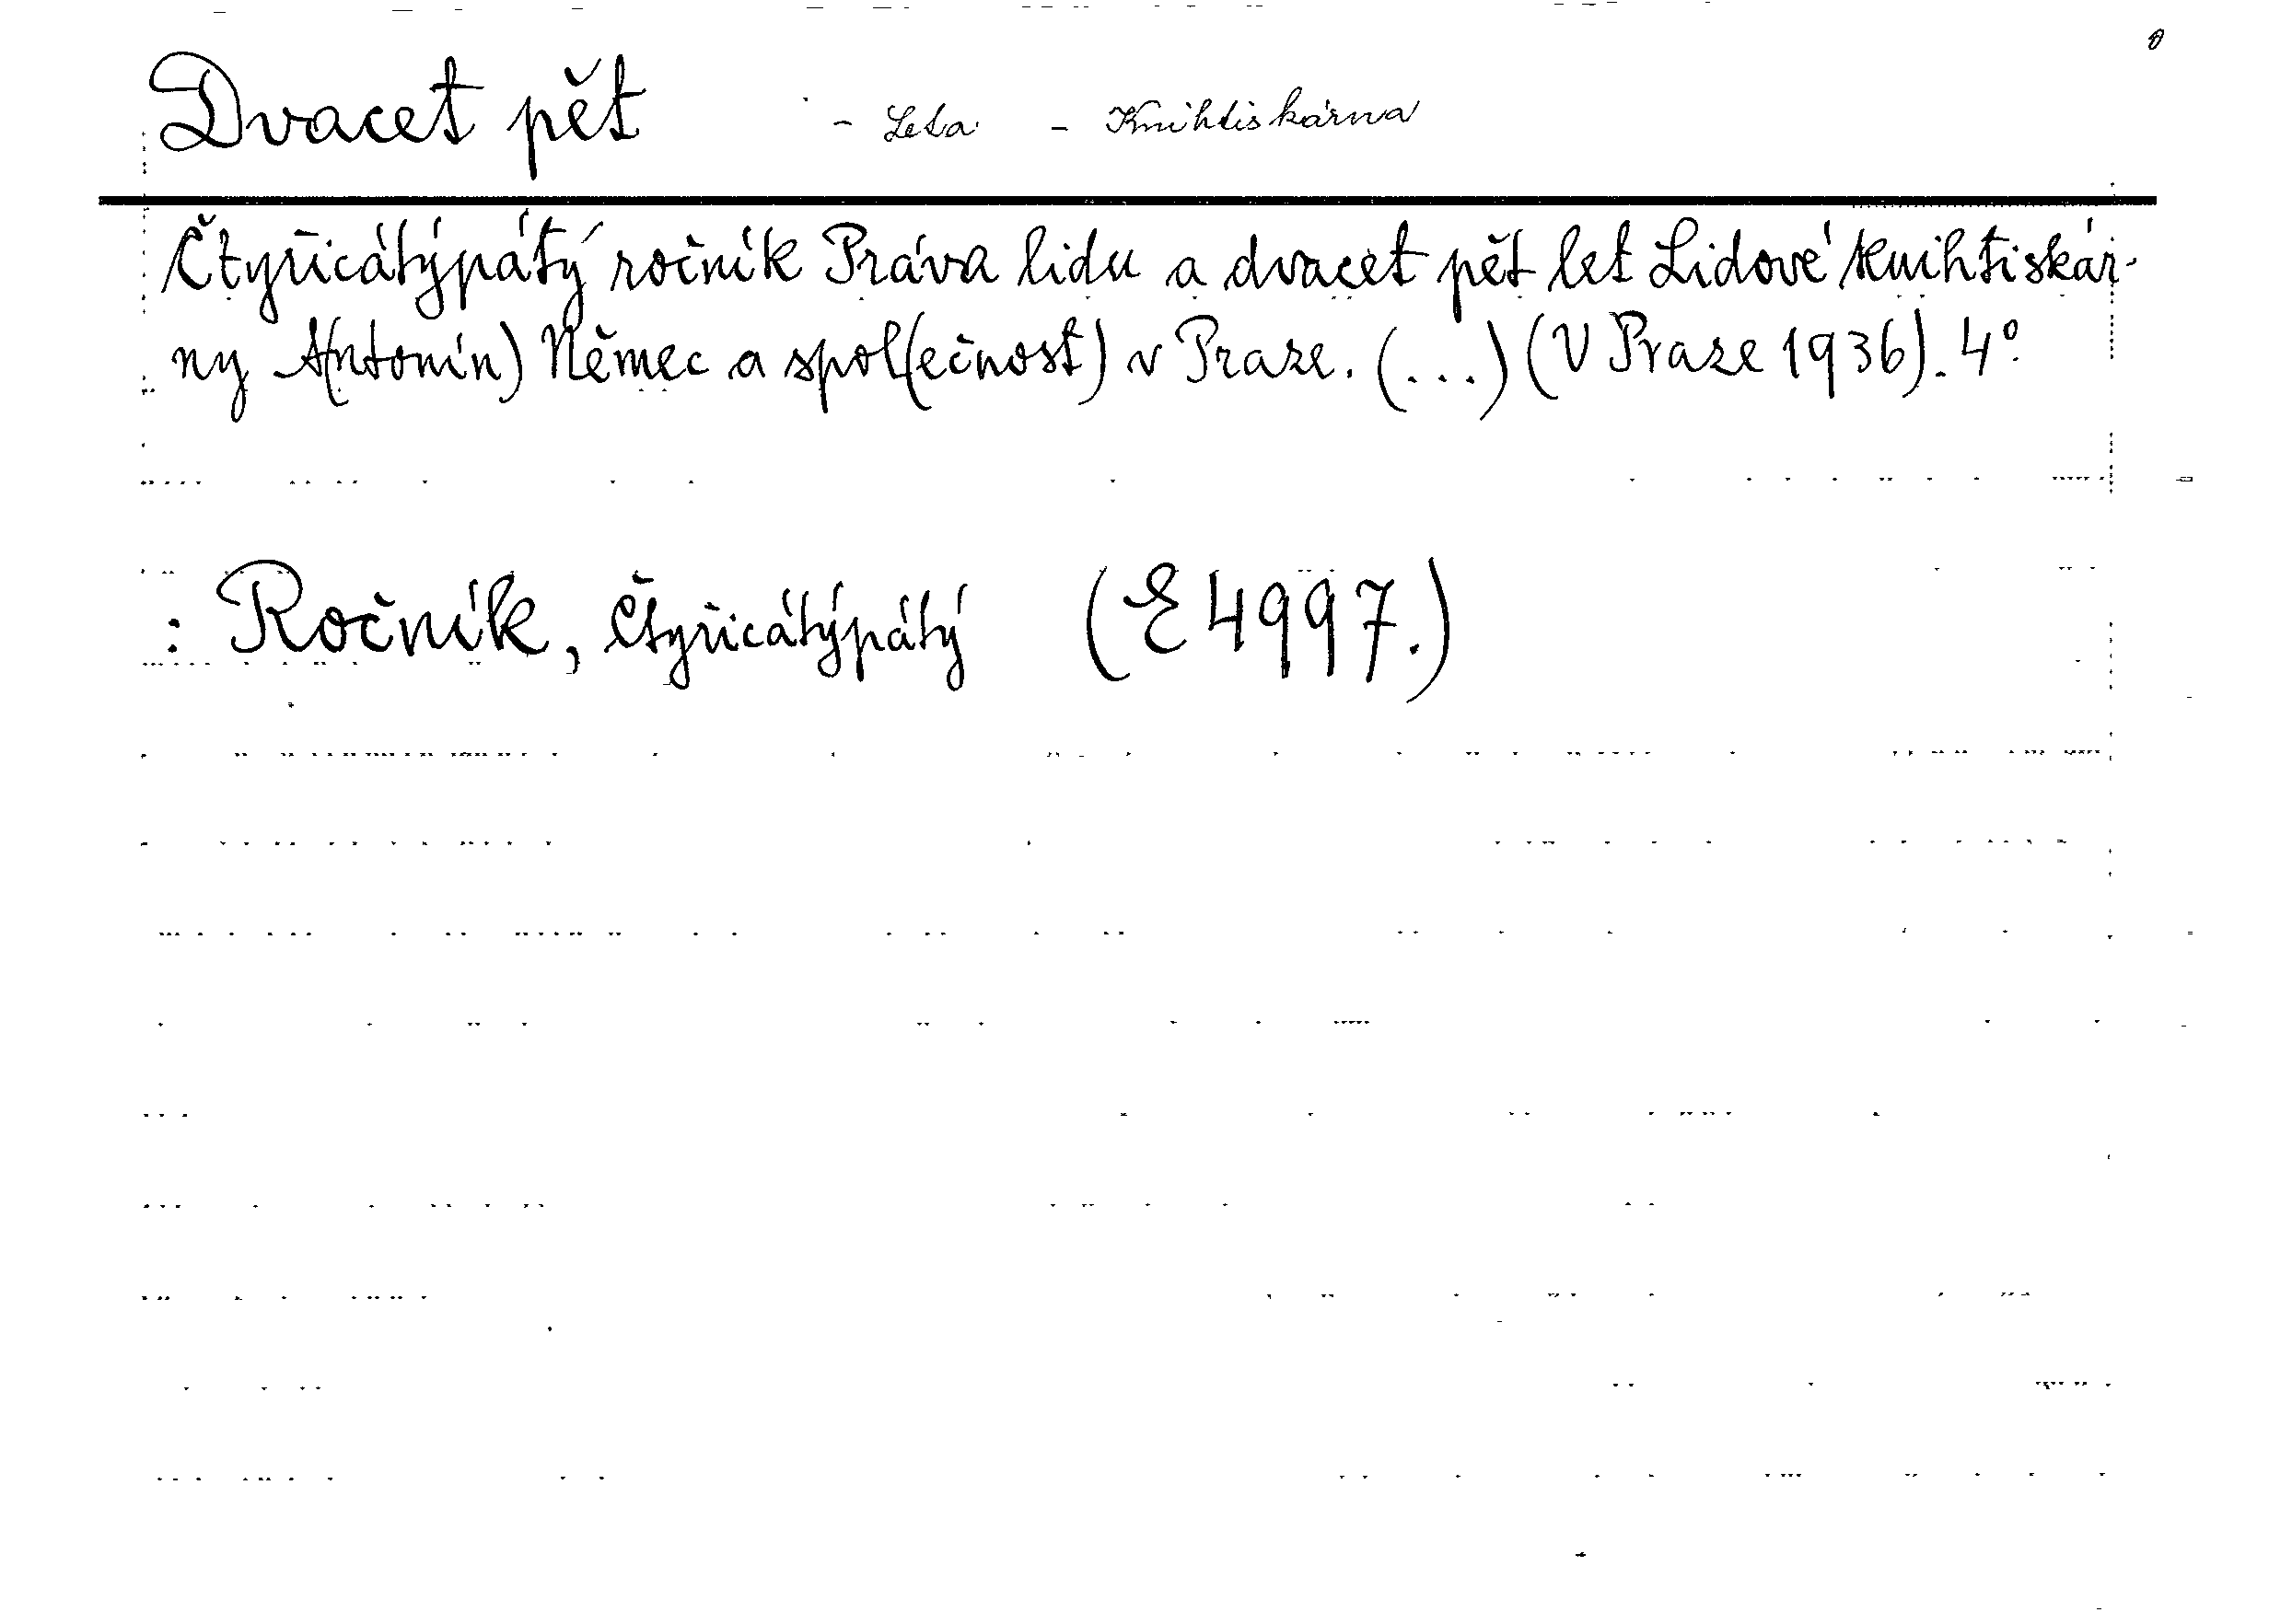 Dvacet pět - Leta - Knihtiskárna
Čtyřicátýpátý ročník Práva lidu a dvacet pět let Lidové knihtiskár-
ny A(ntonín) Němec a spol(ečnost) v Praze. (...) (V Praze 1936). 4°.
: Ročník, čtyřicátýpátý (E 4997.)